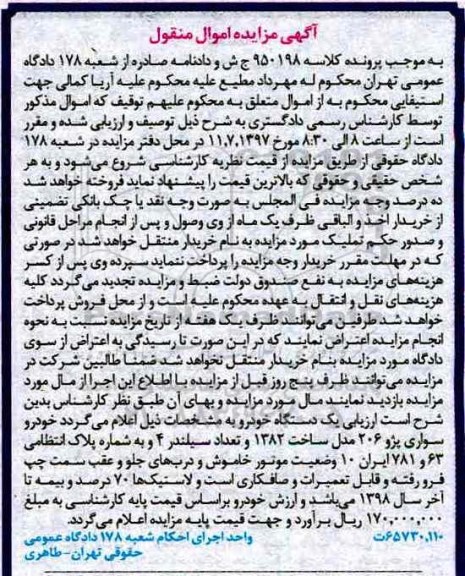 آگهی مزایده اموال منقول
به موجب پرونده کلاسه ۹۵۰۱۹۸ ج ش و دادنامه صادره از شعبه ۱۷۸ دادگاه
عمومی تهران محکوم له مهرداد مطیع علیه محکوم علیه آریا کمالی جهت
استیفایی محکوم به از اموال متعلق به محکوم علیهم توقیف که اموال مذکور
توسط کارشناس رسمی دادگستری به شرح ذیل توصیف و ارزیابی شده و مقرر
است از ساعت ۸ الی ۸:۳۰ مورخ ۱۱,۷,۱۳۹۷ در محل دفتر مزایده در شعبه ۱۷۸
دادگاه حقوقی از طریق مزایده از قیمت نظریه کارشناسی شروع می‌شود و به هر
شخص حقیقی و حقوقی که بالاترین قیمت را پیشنهاد نماید فروخته خواهد شد
ده درصد وجه مزایده فی المجلس به صورت وجه نقد یا چک بانکی تضمینی
از خریدار اخذ و الباقی ظرف یک ماه از وی وصول و پس از انجام مراحل قانونی
و صدور حکم تملیک مورد مزایده به نام خریدار منتقل خواهد شد در صورتی
که در مهلت مقرر خریدار وجه مزایده را پرداخت ننماید سپرده وی پس از کسر
هزینه‌های مزایده به نفع صندوق دولت ضبط و مزایده تجدید می‌گردد کلیه
هزینه‌های نقل و انتقال به عهده محکوم علیه است و از محل فروش پرداخت
خواهد شد طرفین می‌توانند ظرف یک هفته از تاریخ مزایده نسبت به نحوه
انجام مزایده اعتراض نمایند که در این صورت تا رسیدگی به اعتراض از سوی
دادگاه مورد مزایده بنام خریدار منتقل نخواهد شد ضمنا طالبین شرکت در
مزایده می‌توانند ظرف پنج روز قبل از مزایده با اطلاع این اجرا از مال مورد
مزایده بازدید نمایند مال مورد مزایده و بهای آن طبق نظر کارشناس بدین
شرح است ارزیابی یک دستگاه خودرو به مشخصات ذیل اعلام می‌گردد خودرو
سواری پژو ۲۰۶ مدل ساخت ۱۳۸۲ و تعداد سیلندر ۴ و به شماره پلاک انتظامی
۶۳ و ۷۸۱ ایران ۱۰ وضعیت موتور خاموش و درب‌های جلو و عقب سمت چپ
فرو رفته و قابل تعمیرات و صافکاری است و لاستیک‌ها ۷۰ درصد و بیمه تا
آخر سال ۱۳۹۸ می‌باشد و ارزش خودرو براساس قیمت پایه کارشناسی به مبلغ
۱۷۰,۰۰۰,۰۰۰ ریال برآورد و جهت قیمت پایه مزایده اعلام می‌گردد.
۱۱۰,۶۵۷۳۰ت واحد اجرای احکام شعبه ۱۷۸ دادگاه عمومی
حقوقی تهران-طاهری